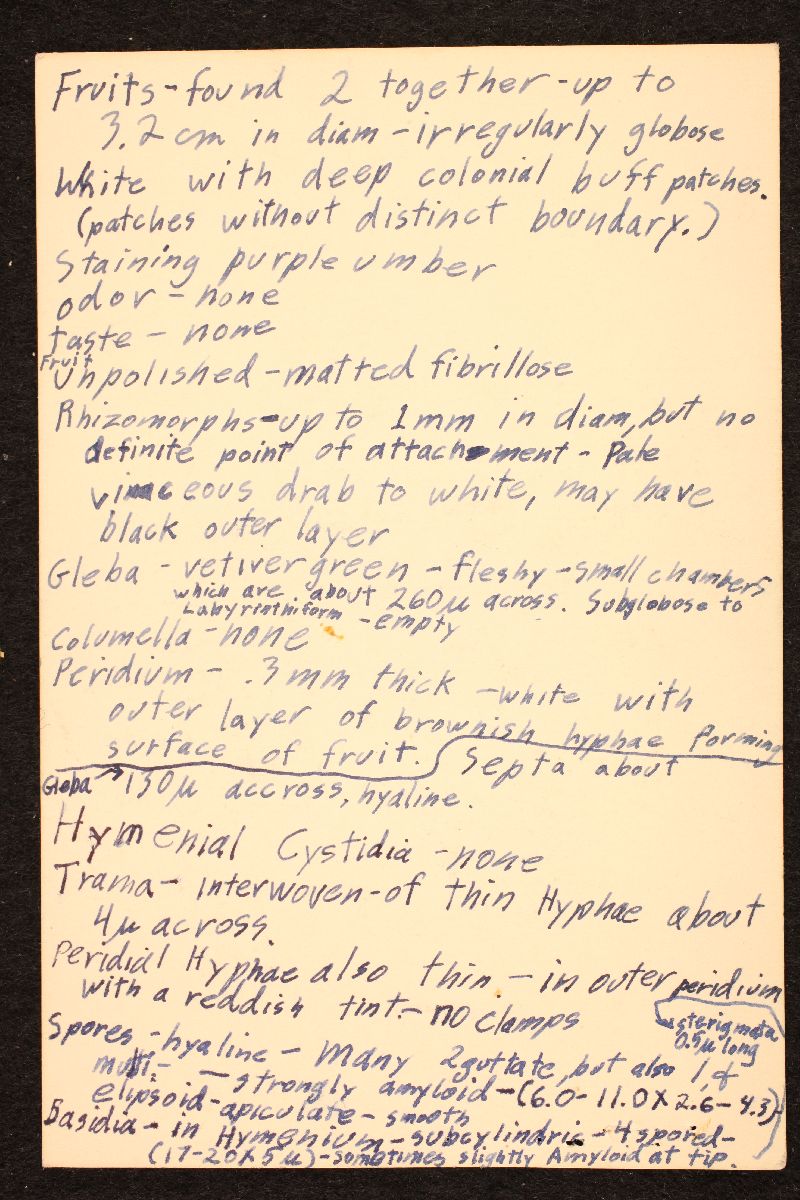 Fruits-found 2 together-up to
3.2 cm in diam-irregularly globose
White with deep colonial buff patches.
(patches without distinct boundary.)
Staining purple umber
odor - none
taste - none
Fruit
Unpolished-matted fibrillose
Rhizomorphs-up to 1mm in diam, but no
definite point of attachment - Pale
vinaceous drab to white, may have
black outer layer
Gleba - vetiver green - fleshy - small chambers
which are about 260μ across. Subglobose to
Labyrinthiform - empty
Columella - none
Peridium - .3mm thick - white with
outer layer of brownish hyphae forming
surface of fruit. Septa about
Gleba → 130μ accross, hyaline.
Hymenial Cystidia - none
Trama- interwoven-of thin Hyphae about
4μ across.
Peridial Hyphae also thin - in outer peridium
with a reddish tint.- no clamps
sterigmata
0.5μ long
Spores - hyaline - Many 2guttate, but also 1, &
multi- - strongly amyloid - (6.0-11.0 X 2.6-4.3)
elipsoid-apiculate - smooth
Basidia - in Hymenium - subcylindric - 4 spored-
(17-20X5μ)-sometimes slightly Amyloid at tip.